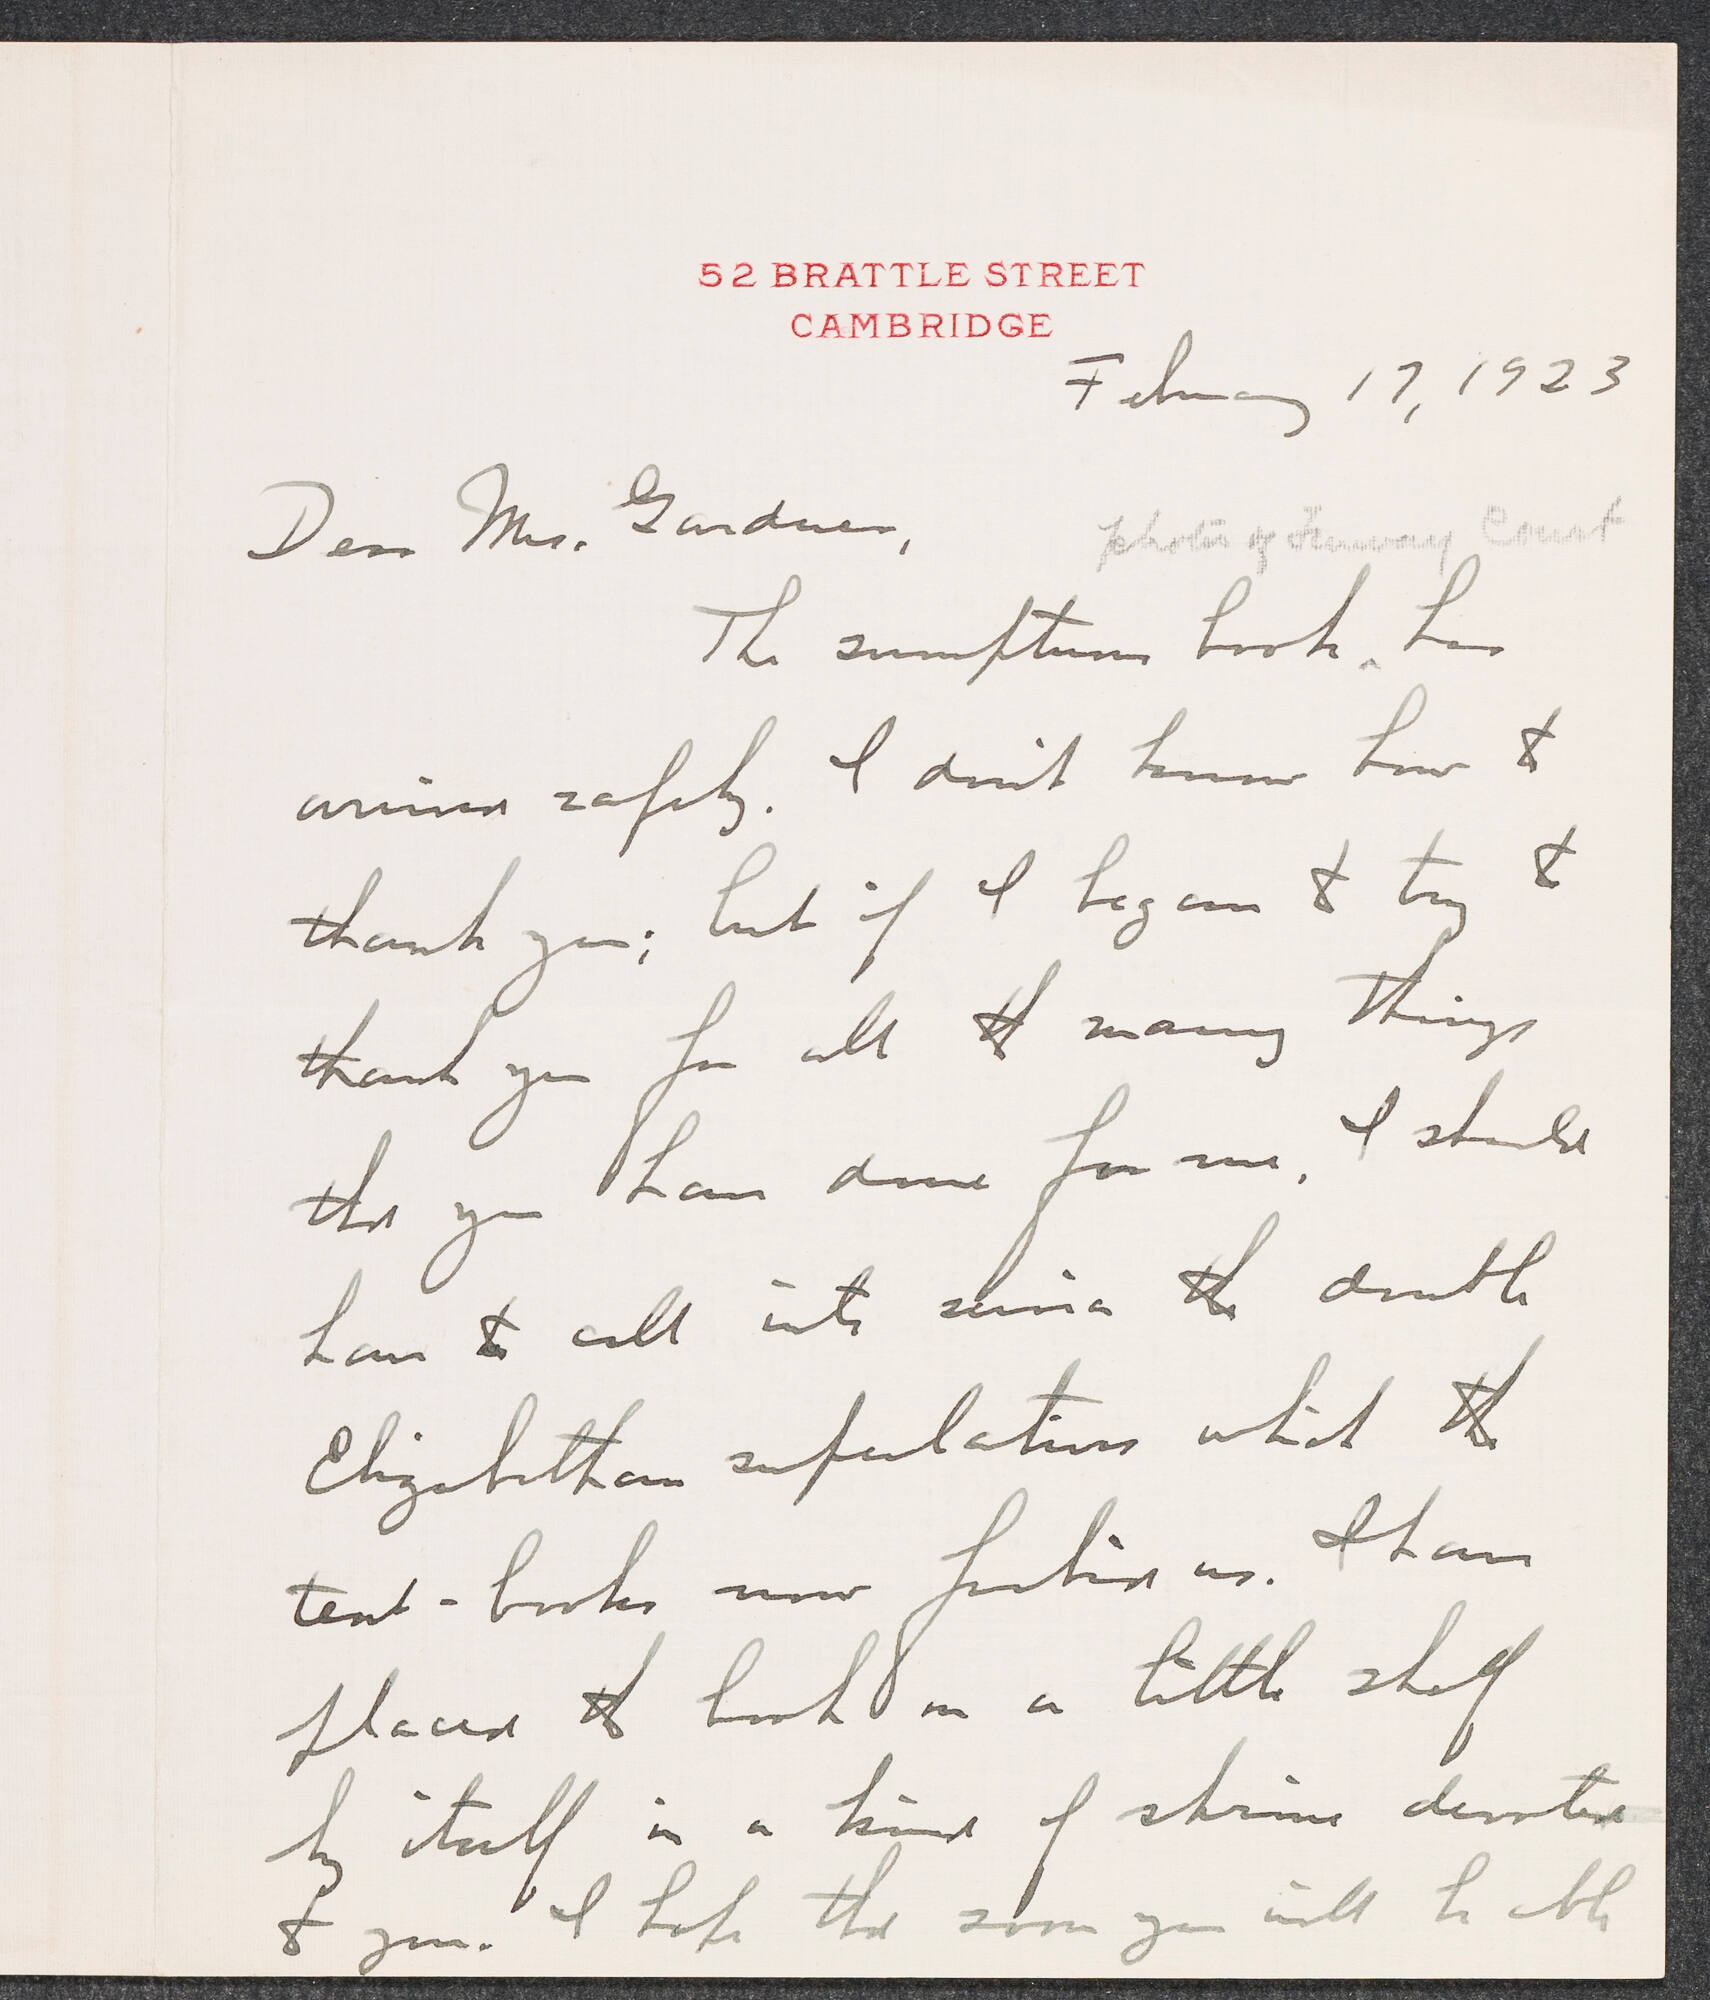 52 BRATTLE STREET
CAMBRIDGE
February 17, 1923
Dear Mrs. Gardner,
photos of Fenway Court
The sumptuous book has
arrived safely. I don't know how to
thank you; but if I began to try to
thank you for all the many things
that you have done for me, I should
have to call into service the double
Elizabethan superlatives which the
text-books now forbid us. I have
placed the book on a little shelf
by itself in a kind of shrine devoted
to you. I hope that soon you will be able